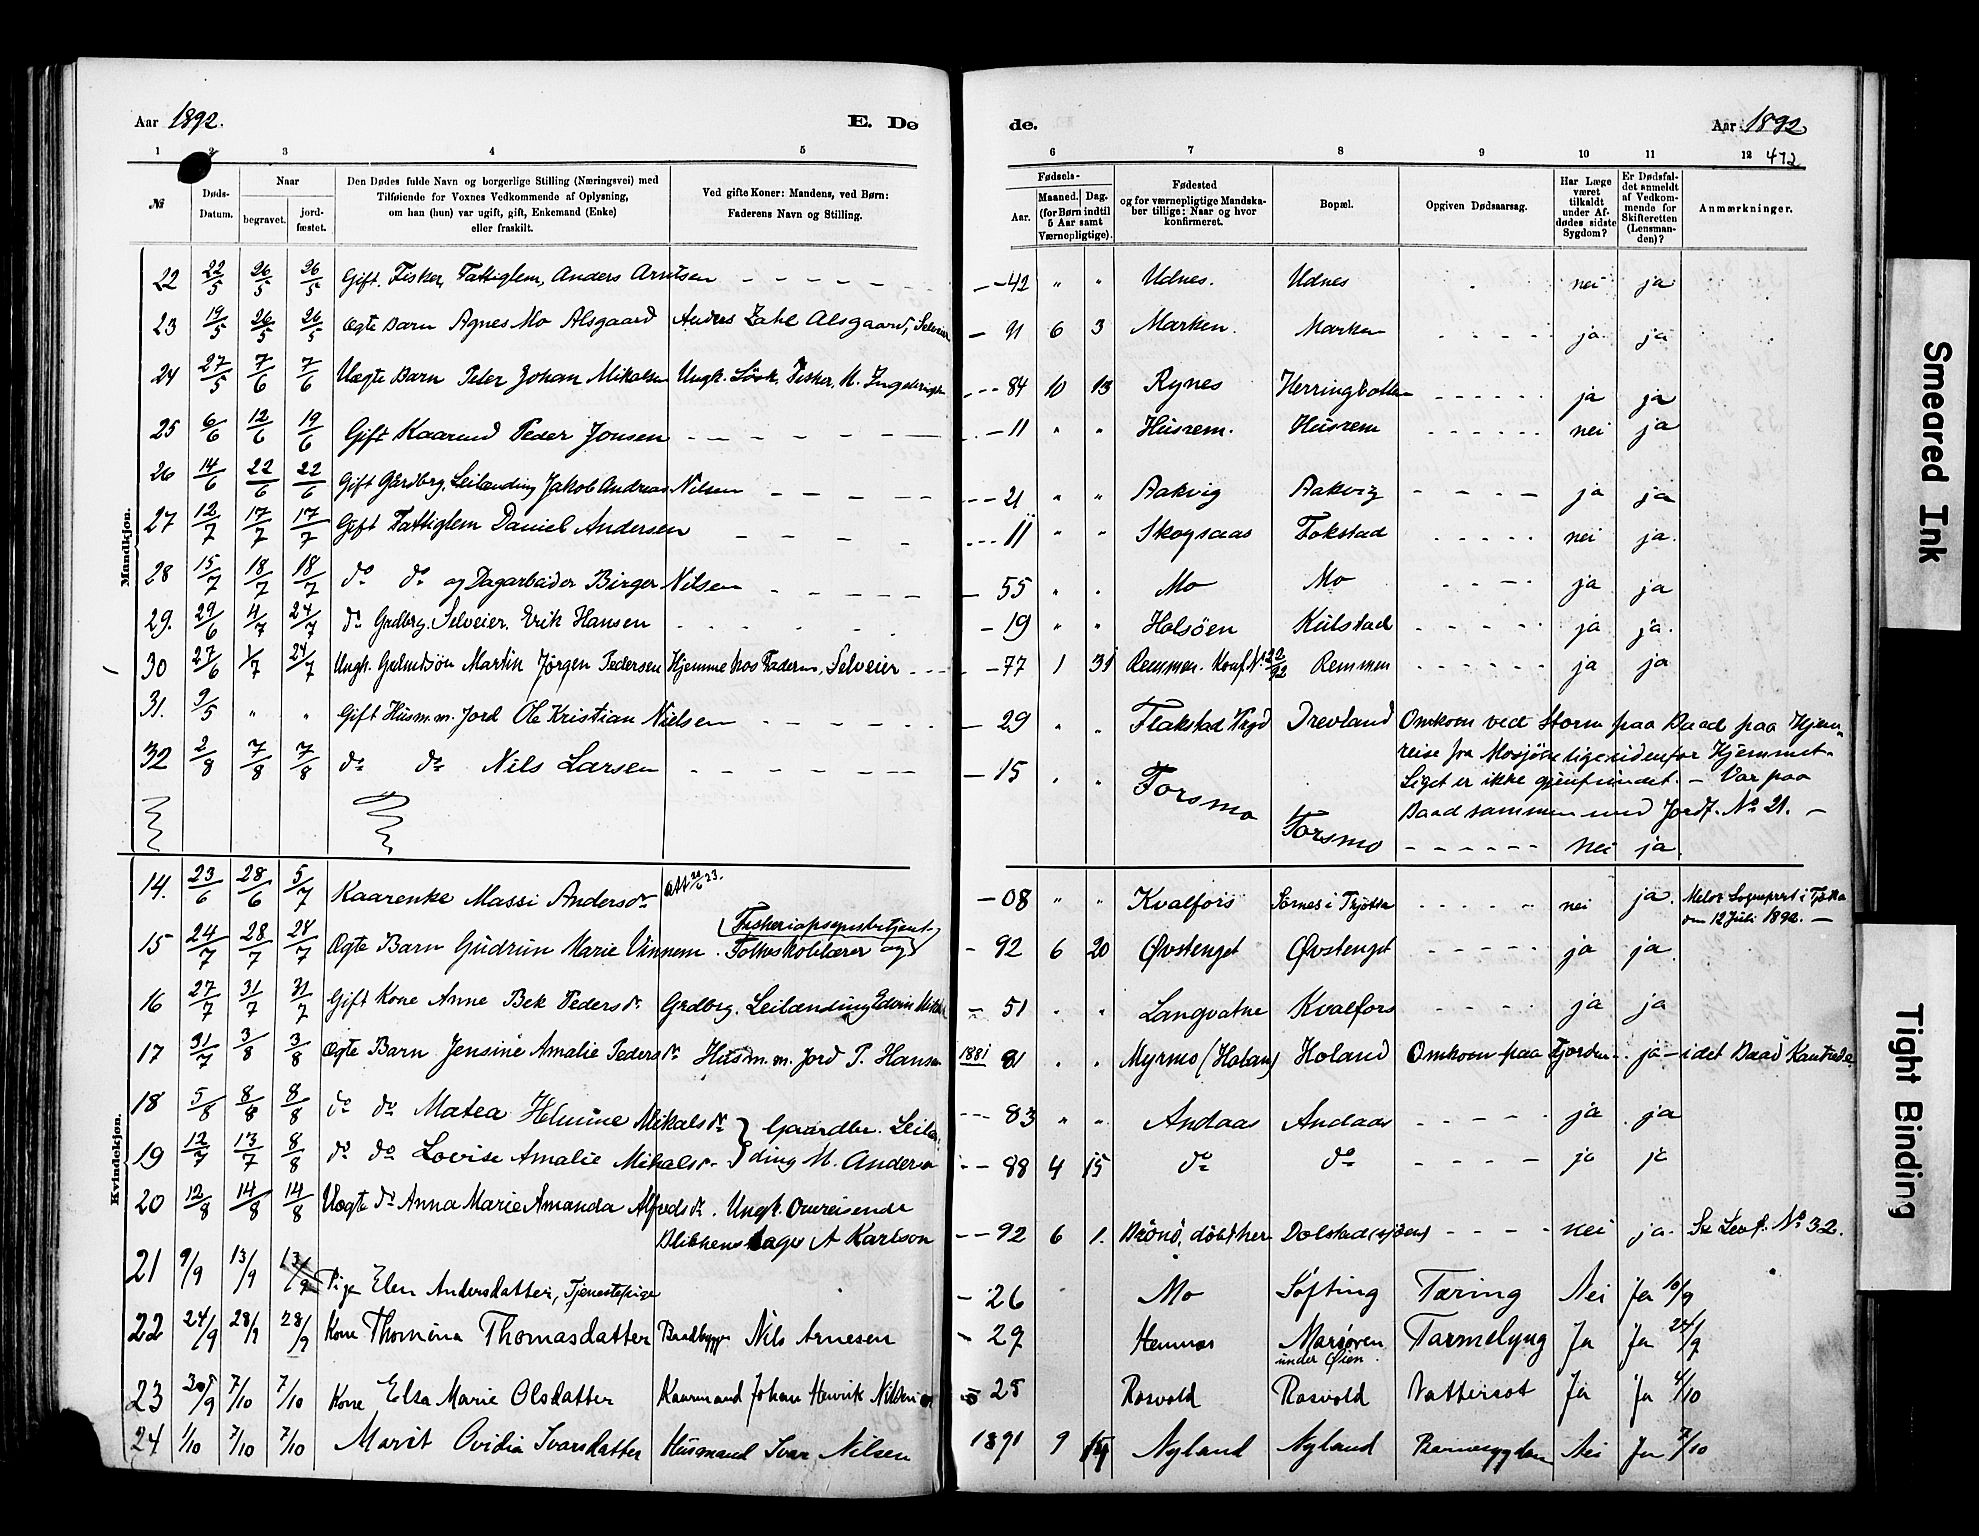 Aar 1892.
E. Dø
de.
Aar 1892
1 2 3 4 5
6 7 8 9 10 11 12 472
№
Døds-Datum.
Naar
begravet.
jord-fæstet.
Den Dødes fulde Navn og borgerlige Stilling (Næringsvei) med
Tilføiende for Voxnes Vedkommende af Oplysning,
om han (hun) var ugift, gift, Enkemand (Enke)
eller fraskilt.
Ved gifte Koner: Mandens, ved Børn:
Faderens Navn og Stilling.
Fødsels-
Aar.
Maaned. Dag.
(for Børn indtil
5 Aar samt
Værnepligtige).
Fødested
og for værnepligtige Mandska-
ber tillige: Naar og hvor
konfirmeret.
Bopæl.
Opgiven Dødsaarsag.
Har Læge
været
tilkaldt
under Af-
dødes sidste
Sygdom?
Er Dødsfal-
det anmeldt
af Vedkom-
mende for
Skifteretten
(Lensman-
den)?
Anmærkninger.
Mandkjøn.
22 22/5 26/5 26/5 Gift. Fisker, Fattiglem, Anders Arntsen - - 42 " " Udnes. Udnes nei ja
23 19/5 26/5 26/5 Ægte Barn Agnes Mo Alsgaard Anders Zahl Alsgaard, Selveier - 91 6 3 Marken. Marken ja ja
24 27/5 7/6 7/6 Uægte Barn Peter Johan Mikalsen Ungk. Fisker, M. - - 84 10 13 Rynes Herringbotten ja ja
25 6/6 12/6 19/6 Gift Kaarmd Peder Jonsen - 11 " " Husrem. Husrem nei ja
26 14/6 22/6 22/6 Gift Gårdbrg. Leilænding Jakob Andreas Nilsen - - 21 " " Aakvig Aakvig ja ja
27 12/7 17/7 17/7 Gift Fattiglem Daniel Andersen - - 11 " " Skogsaas Fokstad nei ja.
28 15/7 18/7 18/7 do do og Dagarbeider Birger Nilsen - 55 " " Mo Mo ja ja
29. 29/6 4/7 24/7 do Grdbrg. Selveier. Erik Hansen - 19 " " Holsöen Kulstad ja ja.
30 27/6 1/7 24/7 Ungk. Martin Jørgen Pedersen Hjemme hos Faderen, Selveier - 77 1 31 Remmen. Konf. Remmen ja ja
31. 9/5 " " Gift Husm. m. Jord Ole Kristian Nielsen - 29 " " Flakstad Drevland Omkom ved Storm paa Baad paa Hjem-
reise fra Mosjöen lige udenfor Hjemmet.
Liget er ikke gjenfundet. - Var paa
Baad sammen med Jordf. No 21. -
32 2/8 7/8 7/8 do do Nils Larsen - 15 " " Forsmo Forsmo nei ja.
Kvindekjøn.
14. 23/6 28/6 5/7 Kaarenke Massi Andersdr - 08 " " Kvalfors Sørnes i Tjøtta nei ja. Tjøtta
12 Juli 1892. -
15 24/7 28/7 28/7 Ægte Barn Gudrun Marie Vinnem. Folkeskolelærer og (Fiskeriopsynsbetjent) - 92 6 20 Øvstenget Øvstenget ja ja.
16 27/7 31/7 31/7 Gift Kone Anne Bek Pedersdr. Grdbrg. Leilænding Edvin - 51 " " Langvatne Kvalfors ja ja
17 31/7 3/8 3/8 Ægte Barn Jensine Amalie Pedersdr Husm. m. Jord P. Hansen 1881 81 " " Myrmo (Holand) Holand Omkom paa Fjorden - ja - idet Baad Kantrede
18 5/8 8/8 8/8 do do Matea Helmine Mikalsdr } Gaardbr. Leilæn- - - 83 " " Andaas Andaas ja ja
19 12/7 13/7 8/8 do do Lovise Amalie Mikalsdr. } ding M. Andersen - - 88 4 15 do do ja ja
20 12/8 14/8 14/8 Uægte do Anna Marie Amanda Alfredsdr. Ungk. Omreisende
Blikkenslager A Karlson - - 92 6 1. Brönö, döbt her Dolstad nei ja. Se No 32.
21 9/9 13/9 13/9 Pige Elen Andersdatter, Tjenestepige - 26 Mo Søfting Tæring Nei Ja 10/9
22 24/9 28/9 28/9 Kone Thomina Thomasdatter Baadbygger Nils Arnesen - 29 Hemnes Marsøren
under Øien. Tarmslyng Ja Ja 24/9
23 30/9 7/10 7/10 Kone Elsa Marie Olsdatter Kaarmand Johan Henrik Nilsen - 25 Rosvold Rosvold Vattersot Ja Ja 4/10
24 1/10 7/10 7/10 Marit Ovidia Ivarsdatter Husmand Ivar Nilsen 1891 9 Nyland Nyland Nei Ja 7/10
Smeared Ink
Tight Binding